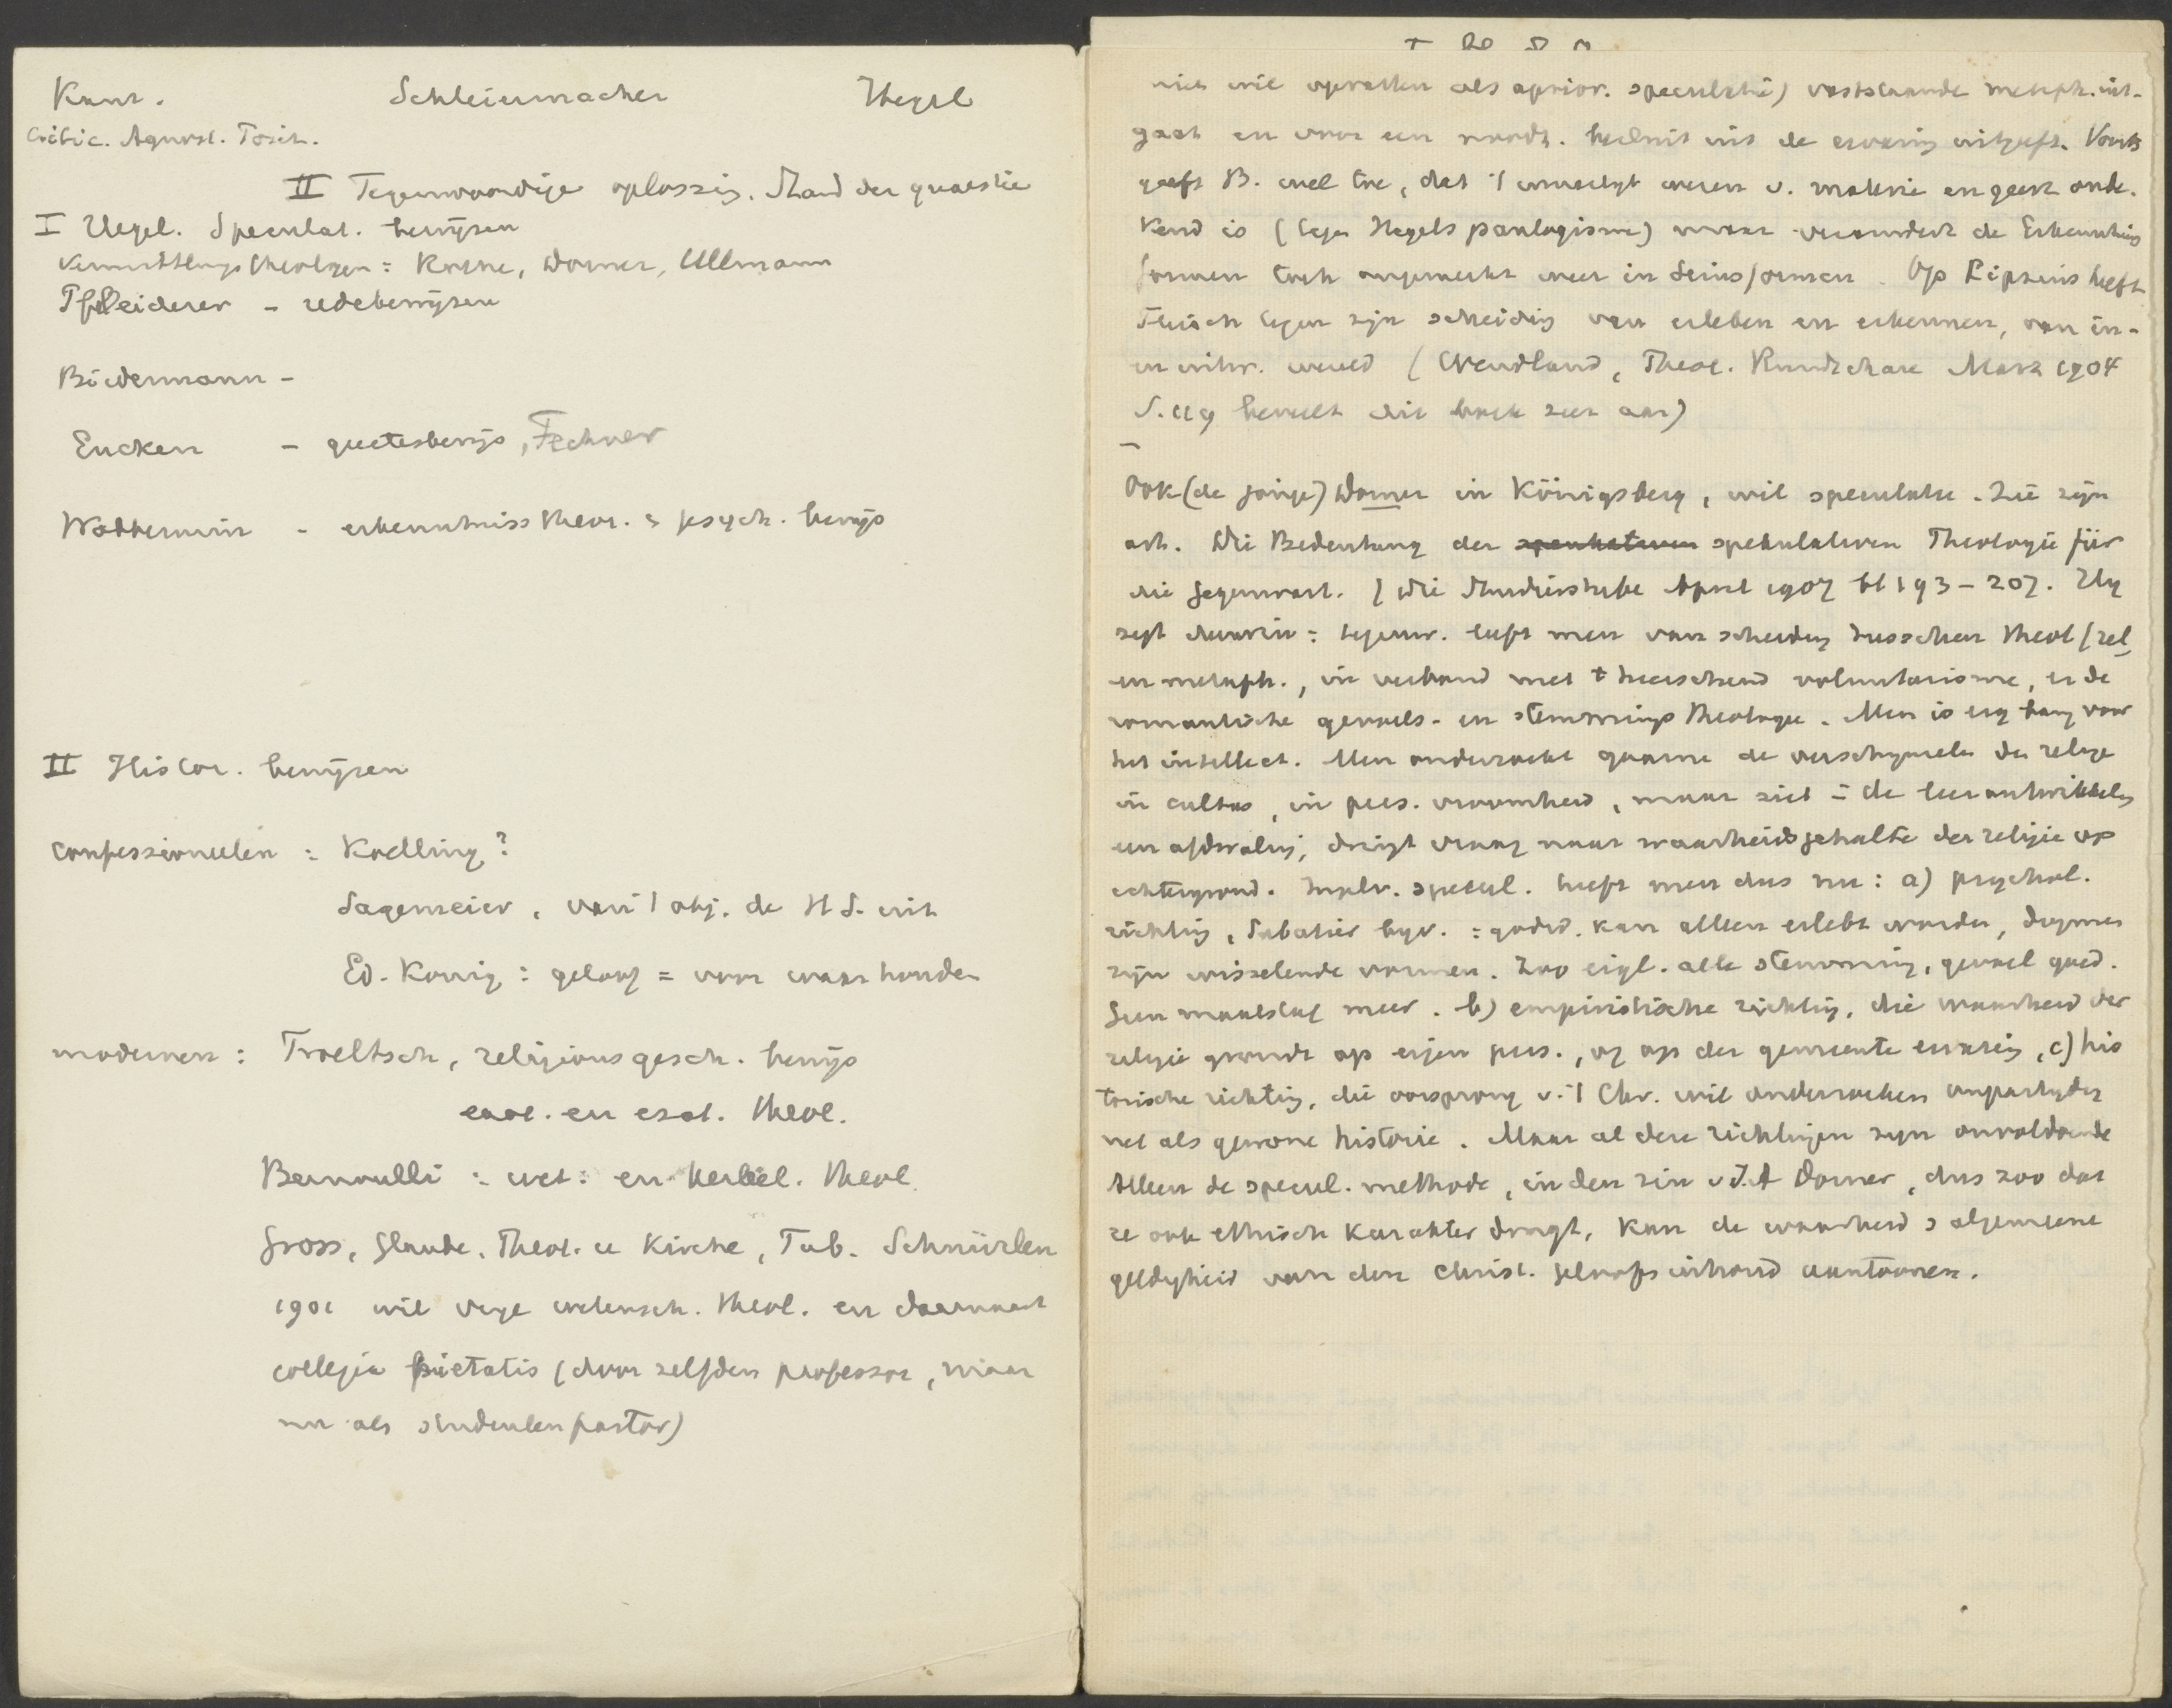 Kant. Schleiermacher Hegel
Critic. Agnost. Posit.
II Tegenwoordige oplossing. Stand der quaestie
I Hegel. Speculat. bewijzen
Vermittlungstheologen: Rothe, Dorner, Ullmann
Pfleiderer - redebewijzen
Biedermann -
Eucken - geestesbewijs, Fechner
Wobbermin - erkenntniss theor. & psych. bewijs
II Histor. bewijzen
confessioneelen : Koelling?
Sagemeier, van 't obj. de H S. uit
Ed. König : geloof = voor waar houden
modernen : Troeltsch, religionsgesch. bewijs
exot. en esot. theol.
Bernoulli : wet: en kerkel. theol.
Gross, Glaube, Theol. u Kirche, Tub. Schnürlen
1901 wil vrije wetensch. theol. en daarnaast
collegia pietatis (door zelfden professor, maar
nu als studentenpastor)
niet wil opvatten als aprior. speculatie) vaststaande metaph. uit-
gaat en voor een noodz. besluit uit de ervaring uitgeeft. Voorts
geeft B. wel toe, dat 't innerlijkt wezen v. materie en geest onbe-
kend is (tegen Hegels panlogisme) maar verandert de Erkenntnis
formen toch ongemerkt weer in Seinsformen. Op Lipsius heeft
Fleisch tegen zijn scheiding van erleben en erkennen, van in-
en uitw. wereld (Wendland, Theol. Rundschau Marz 1904
S. 119 beveelt dit boek zeer aan)
Ook (de jonge) Dorner in Königsberg, wil speculatie. Zie zijn
art. Die Bedeutung der spekulativen Theologie für
die Gegenwart. / Die Studierstube April 1907 bl 193-207. Hij
zegt daarin: tegenw. leeft men van scheiding tusschen theol/rel
en metaph., in verband met 't heerschend voluntarisme, en de
romantische gevoels- en stemmings theologie. Men is erg bang voor
het intellect. Men onderzoekt gaarne de verschijnselen der religie
in cultus, in pers. vroomheid, maar ziet in de leerontwikkeling
een afdwaling, dringt vraag naar waarheidsgehalte der religie op
achtergrond. Inplv. specul. heeft men dus nu: a) psychol.
richting, Sabatier bijv. : godsd. kan alleen erlebt worden, dogmen
zijn wisselende vormen. Zoo eigl. alle stemming, gevoel goed.
Geen maatstaf meer. b) empiristische richting, die waarheid der
religie grondt op eigen pers., of op der gemeente ervaring, c) his
torische richting, die oorsprong v. 't Chr. wil onderzoeken onpartijdig
net als gewone historie. Maar al deze richtingen zijn onvoldoende
Alleen de specul. methode, in den zin v J. A Dorner, dus zoo dat
ze ook ethisch karakter draagt, kan de waarheid & algemeene
geldigheid van den christ. geloofsinhoud aantoonen.